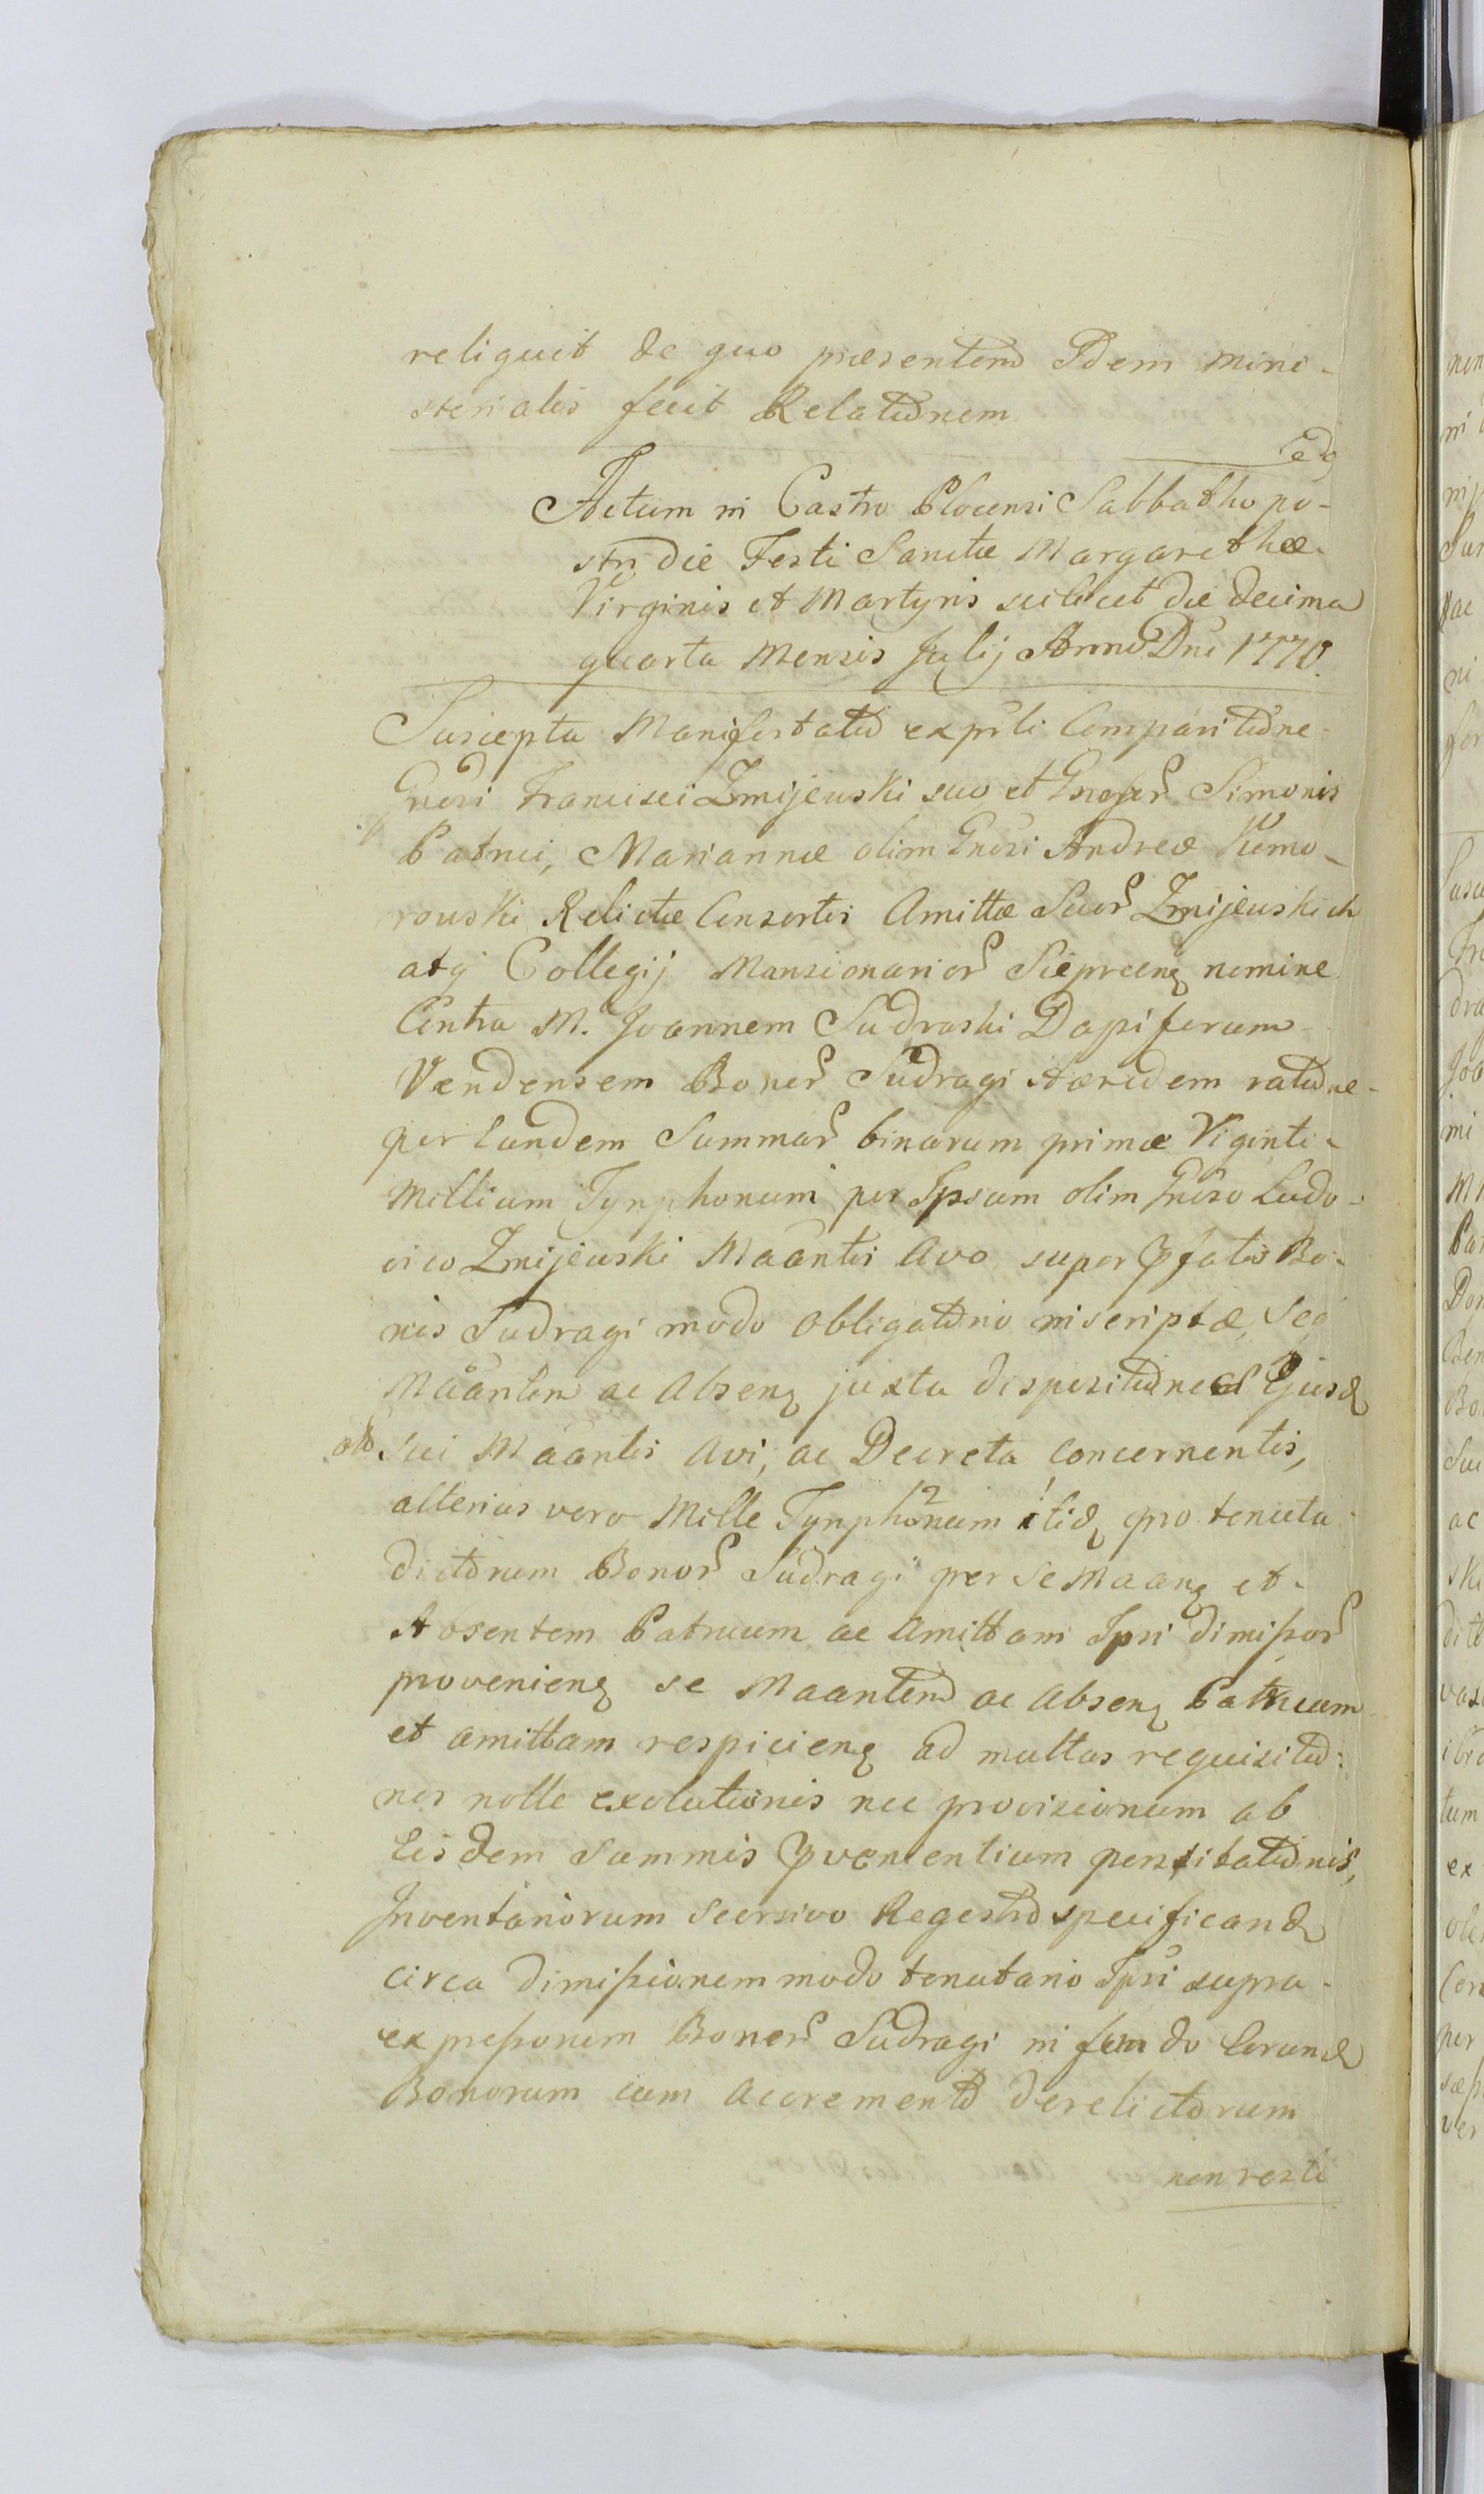 reliquit de quo præsentem Idem mini-
sterialis fecit Relationem
Actum in Castro Plocensi Sabbatho po-
stri die Festi Sanctæ Margarethæ
Virginis et Martyris scilicet die decima
quarta Mensis Julij Anno Dni 1770.
Suscepta Manifestatio ex prsli Comparitione
Gnosi Francisci Zmijewski suo et Gnosor Simonis
Patrui, Mariannæ olim Gnosi Andreæ Kumo-
rowski Relictæ Consortis Amittæ Suor Zmijewskich
atq Collegij Mansionarior Sieprcenq nomine
Contra M. Joannem Sudraski Dapiferum
Vendensem Bonor Sudragi Hæredem ratione
perlundem Summar binarum primæ Viginti
Millium Tynphonum per Ipsum olim Gnoso Ludo-
vico Zmijewski Maantis Avo super Pfatis Bo-
nis Sudragi modo obligatorio inscriptæ, Seq
Maanten ac Absenq juxta dispositiones Ejusd
sui Maantis Avi, ac Decreta concernentis,
alterius vero Mille Tynphonum itid pro tenuta
dictorum Bonor Sudragi per se Maanq et
Absentem Patruum ac Amittam Ipsi dimissor
provenienq se Maantem ac absenq Patruum
et amittam respicienq ad multas requisitio-
nes nolle exolutionis nec provisionum ab
Eisdem Summis Pvenientium pensitationis,
Inventariorum Seorsivo Regestro specificand
circa dimissionem modo tenutario Ipsi supra
expressorum Bonor Sudragi in fundo Eorund
Bonorum cum Accremento derelictorum
non resti